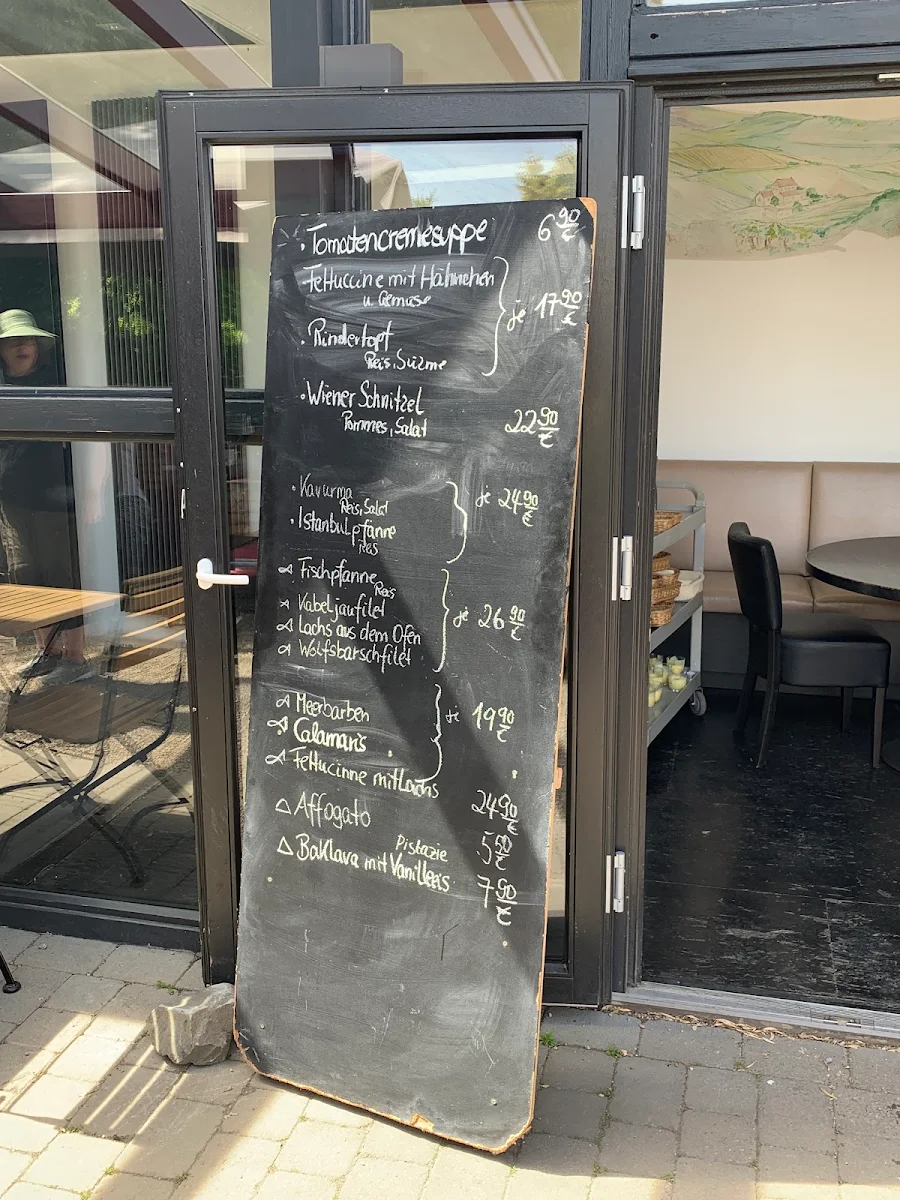 Tomatencremesuppe 6 90 €
Fettuccine mit Hähnchen
u. Gemüse
je 17 90 €
Rindertopf
Reis, Süzme
Wiener Schnitzel
Pommes, Salat
22 90 €
Kavurma
Reis, Salat
je 24 90 €
Istanbulpfanne
Reis
Fischpfanne
Reis
Kabeljaufilet
je 26 90 €
Lachs aus dem Ofen
Wolfsbarschfilet
Meerbarben
je 19 90 €
Calamaris
Fettucinne mit Lachs
24 90 €
Affogato
5 50 €
Pistazie
Baklava mit Vanilleeis
7 90 €